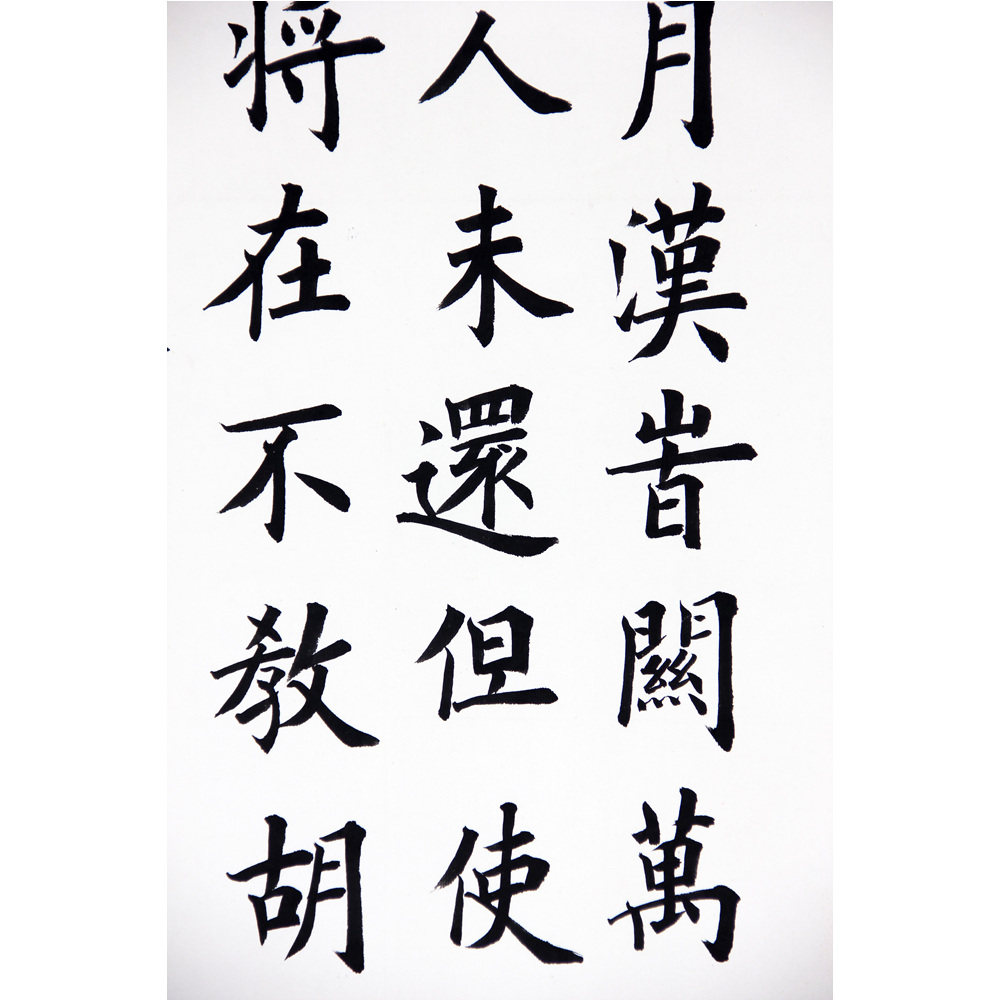 月漢旹關萬
人未還但使
将在不敎胡